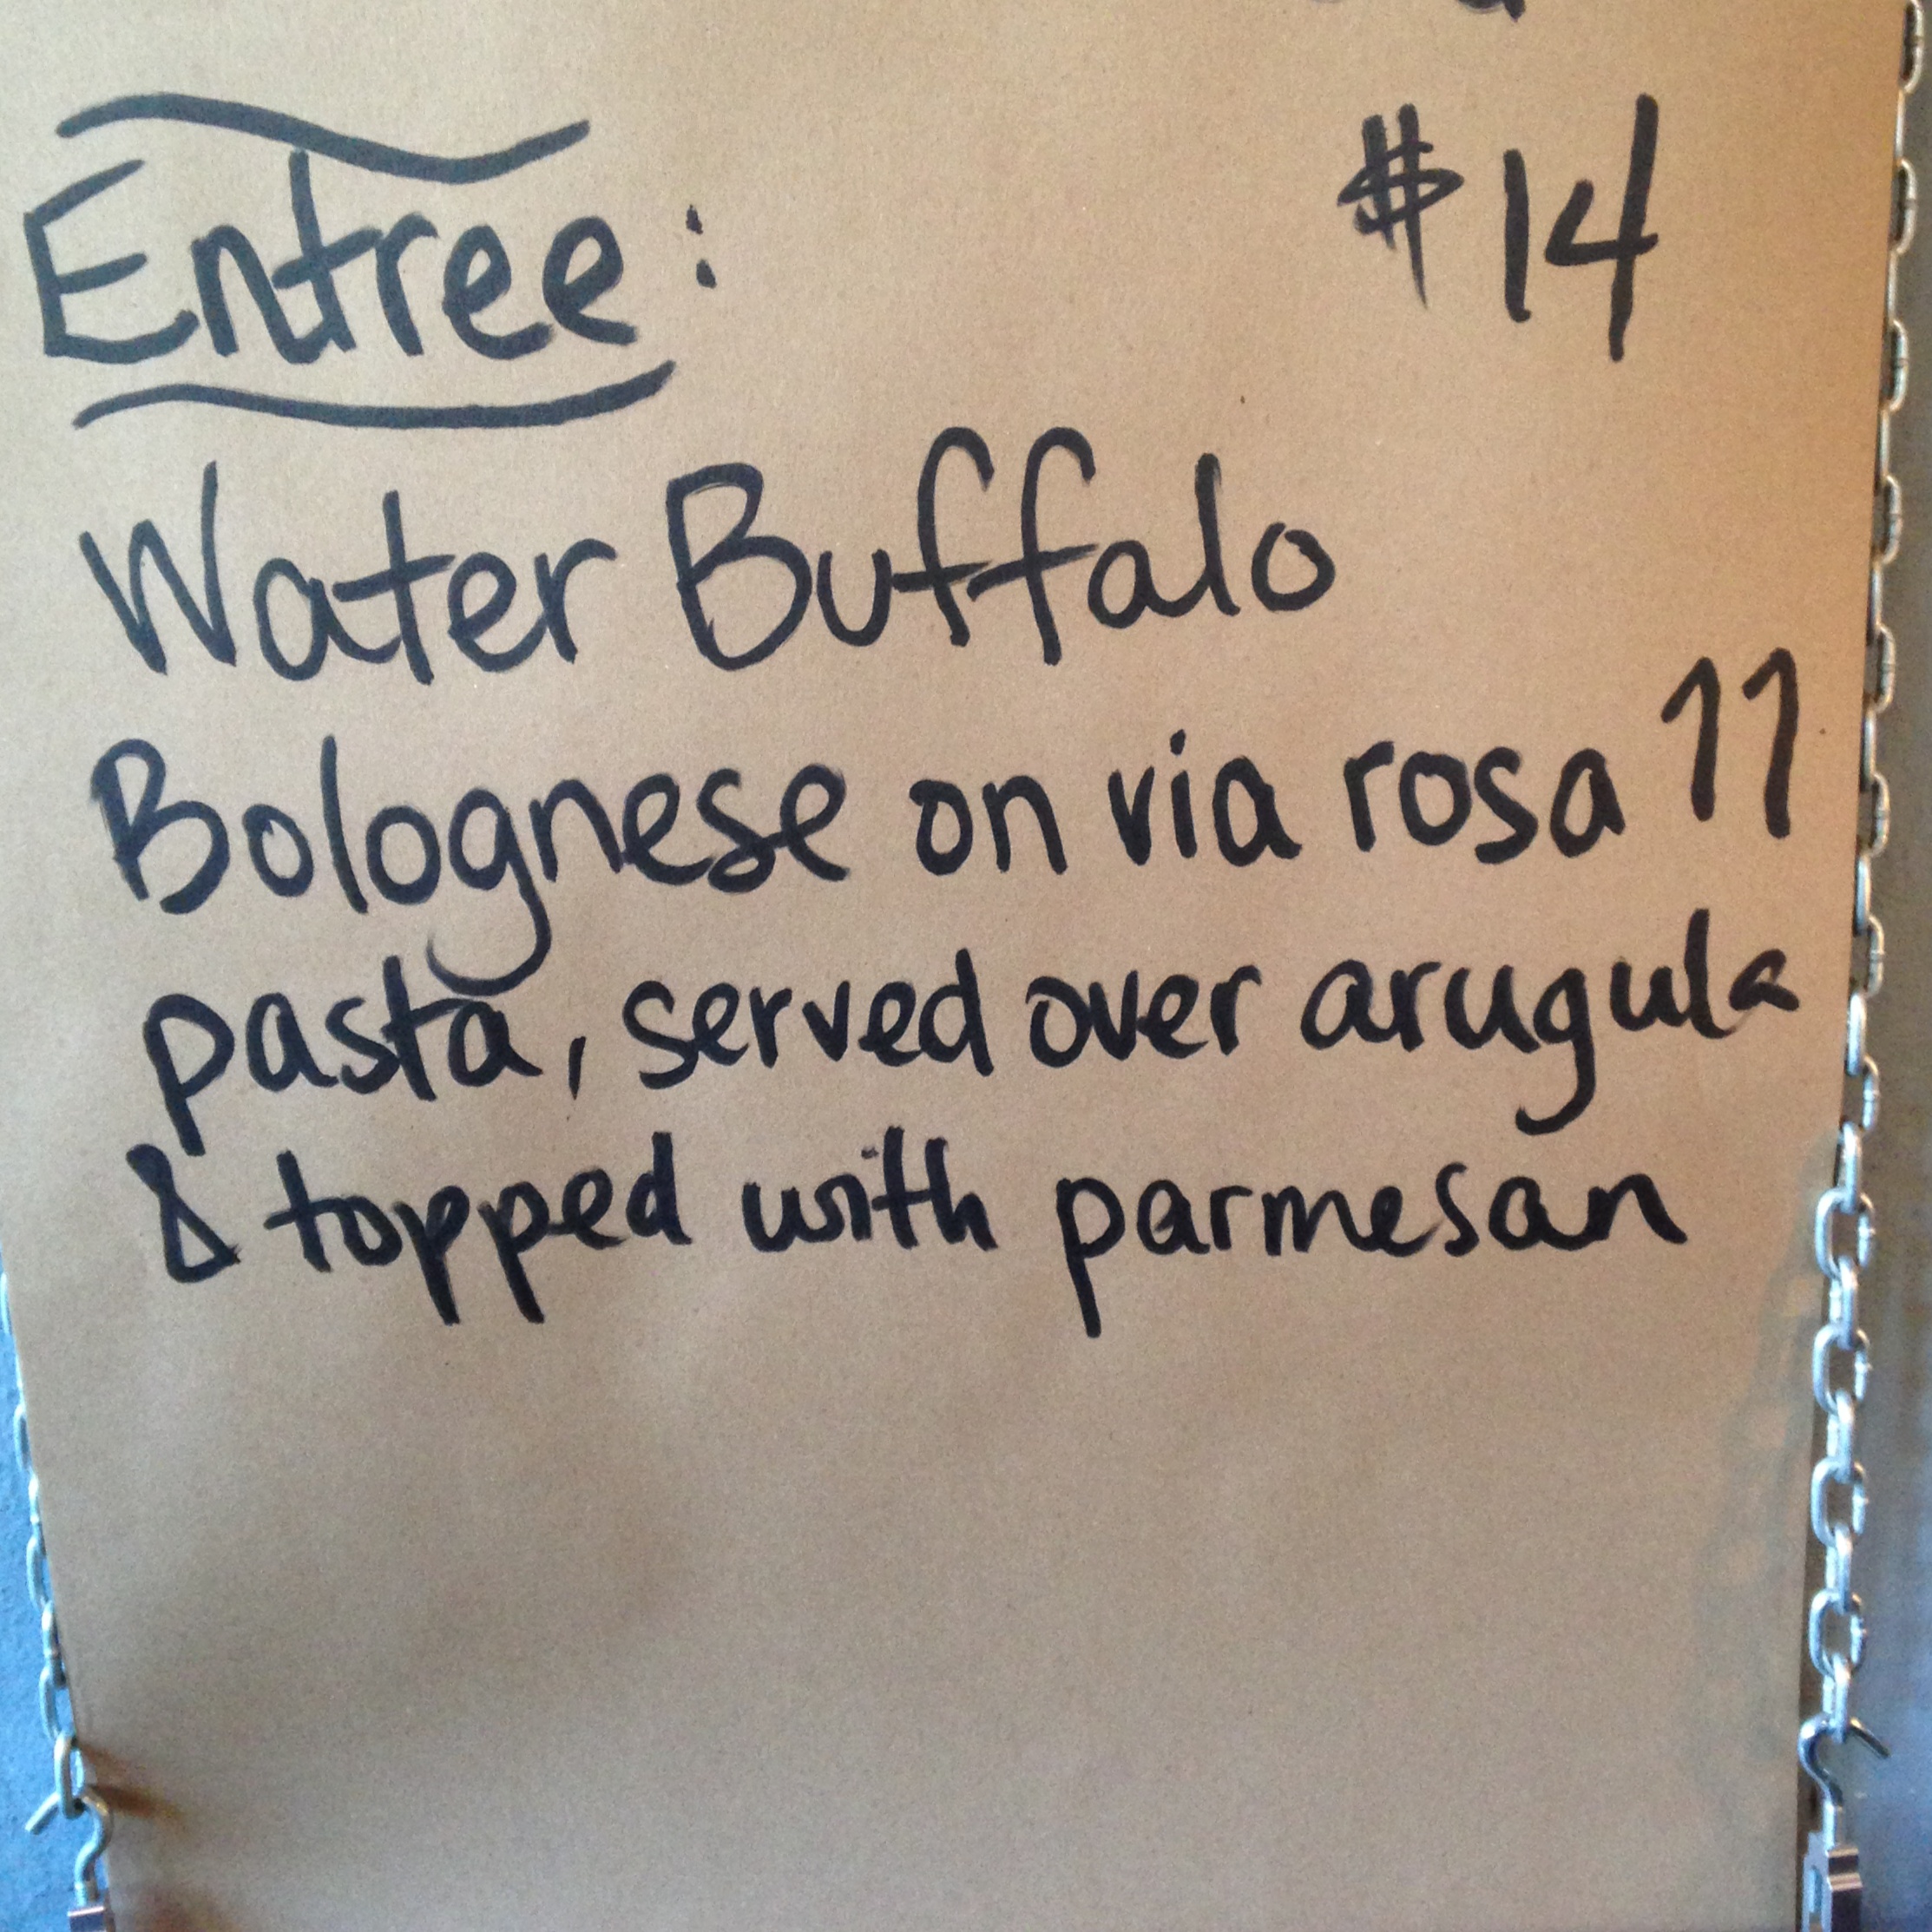 Entree: $14
Water Buffalo
Bolognese on via rosa 11
pasta, served over arugula
& topped with parmesan